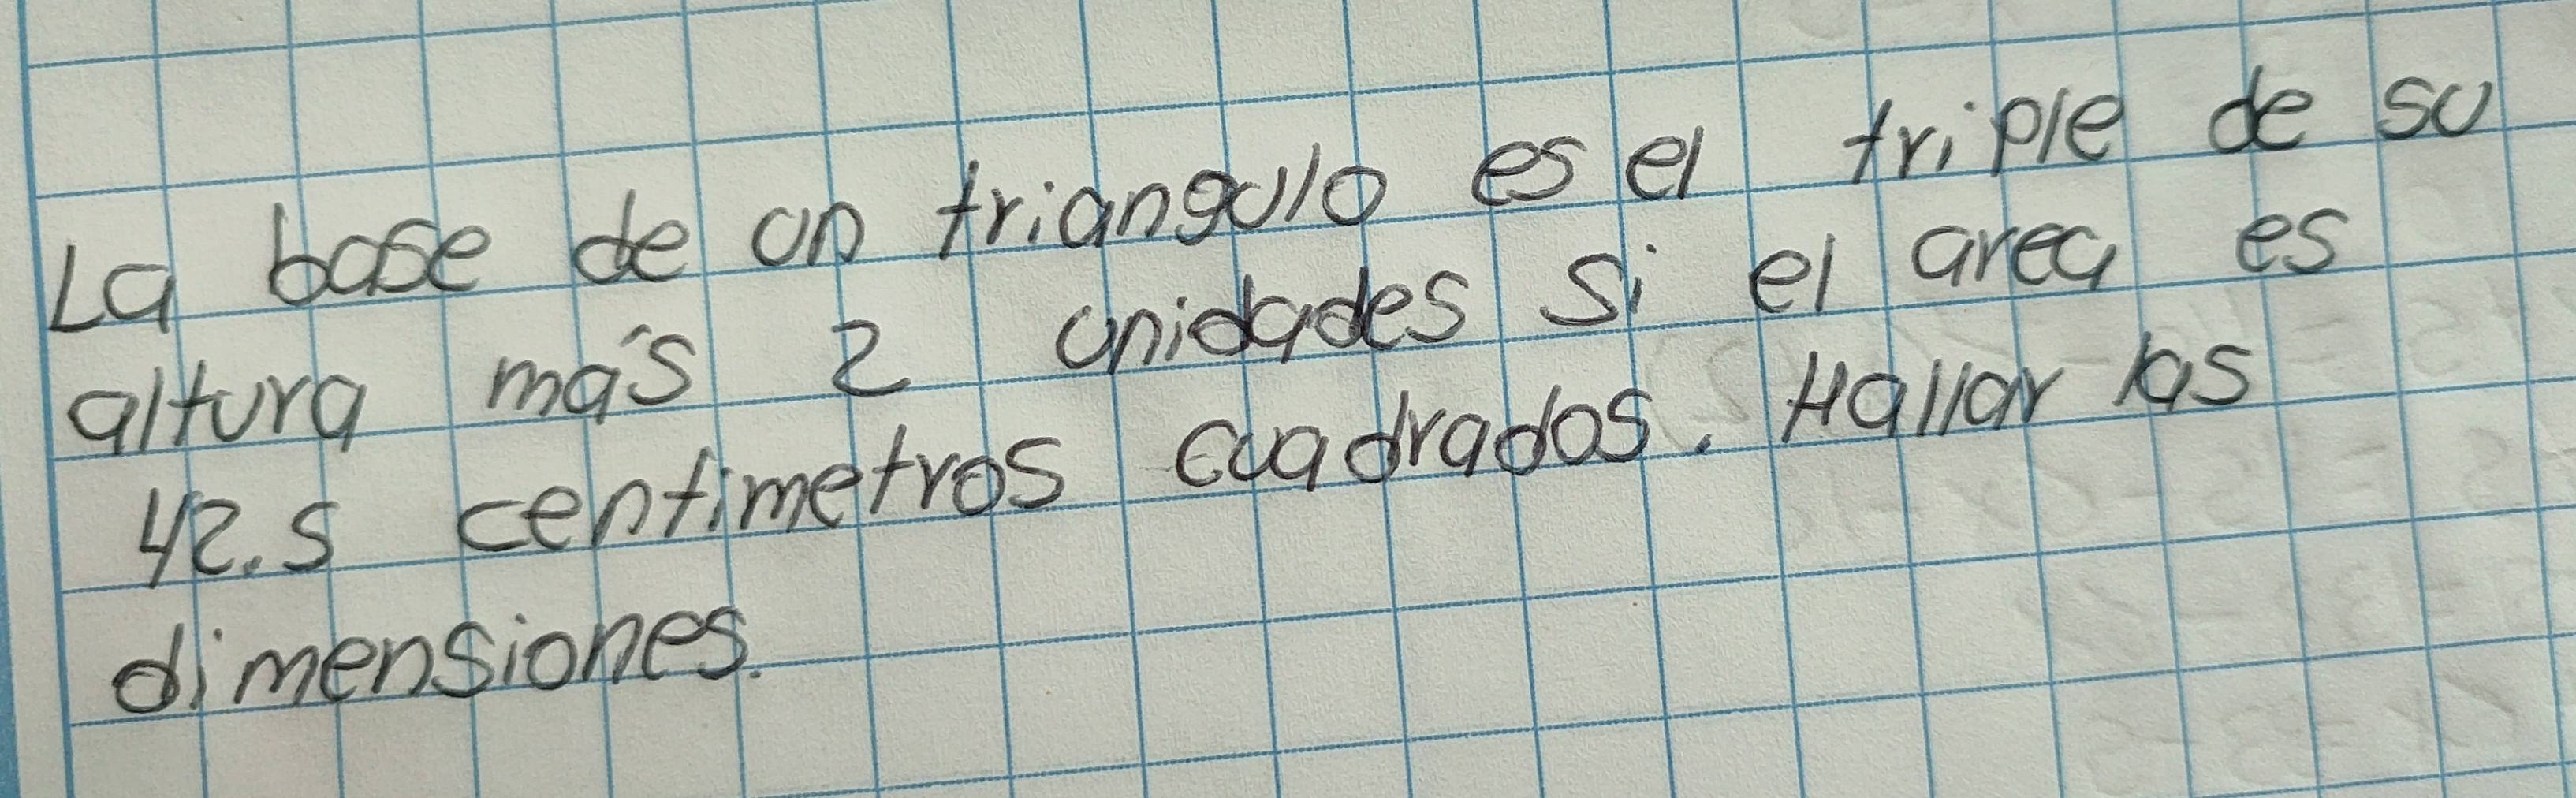 La base de un triangulo es el triple de su
altura más 2 unidades si el area es
42.5 centimetros cuadrados. Hallar las
dimensiones.